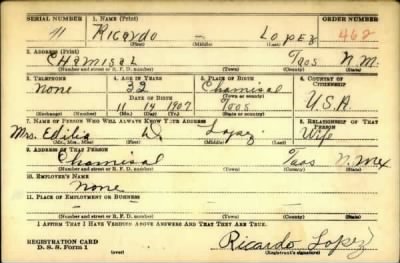 SERIAL NUMBER 1. NAME (Print) ORDER NUMBER
11 RICARDO – LOPEZ 462
(First) (Middle) (Last)
2. ADDRESS (Print)
CHAMISAL TAOS N.M.
(Number and street or R. F. D. number) (Town) (County) (State)
3. TELEPHONE 4. AGE IN YEARS 5. PLACE OF BIRTH 6. COUNTRY OF CITIZENSHIP
None 32 Chamisal
DATE OF BIRTH (Town or county)
11 14 1907 Taos U.S.A.
(Exchange) (Number) (Mo.) (Day) (Yr.) (State or country)
7. NAME OF PERSON WHO WILL ALWAYS KNOW YOUR ADDRESS 8. RELATIONSHIP OF THAT PERSON
Mrs. Edilia D. Lopez Wife
(Mr., Mrs., Miss) (First) (Middle) (Last)
9. ADDRESS OF THAT PERSON
Chamisal Taos N. Mex
(Number and street or R. F. D. number) (Town) (County) (State)
10. EMPLOYER'S NAME
None
11. PLACE OF EMPLOYMENT OR BUSINESS
– – – –
(Number and street or R. F. D. number) (Town) (County) (State)
I AFFIRM THAT I HAVE VERIFIED ABOVE ANSWERS AND THAT THEY ARE TRUE.
REGISTRATION CARD
D. S. S. Form 1 (over) Ricardo Lopez
(Registrant's signature)